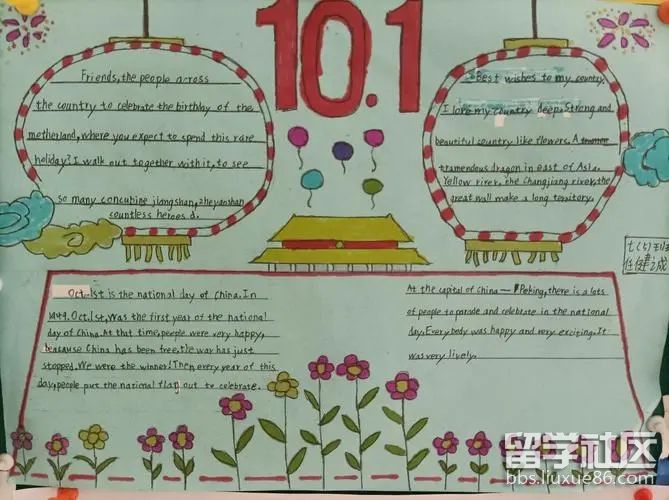 10.1
Friends, the people across
the country to celebrate the birthday of the
metherland, where you expect to spend this rare
holiday? I walk out together with it, to see
so many concubine jiangshan, zheyaoshan
countless heroes d.
Best wishes to my country.
I love my country deep. Strong and
beautiful country like flowers. A
tramendous dragon in east of Asia.
Yellow river, the Changjiang river, the
great wall make a long territory.
七(5)班
任健诚
Oct. 1st is the national day of China. In
1949. Oct. 1st, was the first year of the national
day of China. At that time, people were very happy,
beacause China has been free. the war has just
stopped. We were the winner! Then every year of this
day, people put the national flag out to celebrate.
At the capital of China — Peking, there is a lots
of people to parade and celebrate in the national
day. Every body was happy and very exciting. It
was very lively.
留学社区
bbs.liuxue86.com